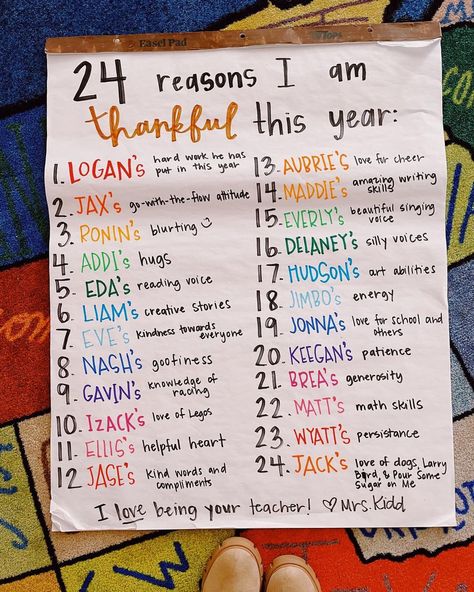 Easel Pad
TOPS
24 reasons I am
thankful this year:
1. LOGAN's hard work he has
put in this year
2. JAX's go-with-the-flow attitude
3. RONIN's blurting
4. ADDI's hugs
5. EDA's reading voice
6. LIAM's creative stories
7. EVE's kindness towards
everyone
8. NASH's goofiness
9. GAVIN's knowledge of
racing
10. IZACK's love of Legos
11. ELLIS's helpful heart
12 JASE's kind words and
compliments
13. AUBRIE's love for cheer
14. MADDIE's amazing writing
skills
15. EVERLY's beautiful singing
voice
16. DELANEY's silly voices
17. HUDSON's art abilities
18. JIMBO's energy
19. JONNA's love for school and
others
20. KEEGAN's patience
21. BREA's generosity
22. MATT's math skills
23. WYATT's persistance
24. JACK's love of dogs, Larry
Bird, & Pour Some
Sugar on Me
I love being your teacher! ♡ Mrs. Kidd